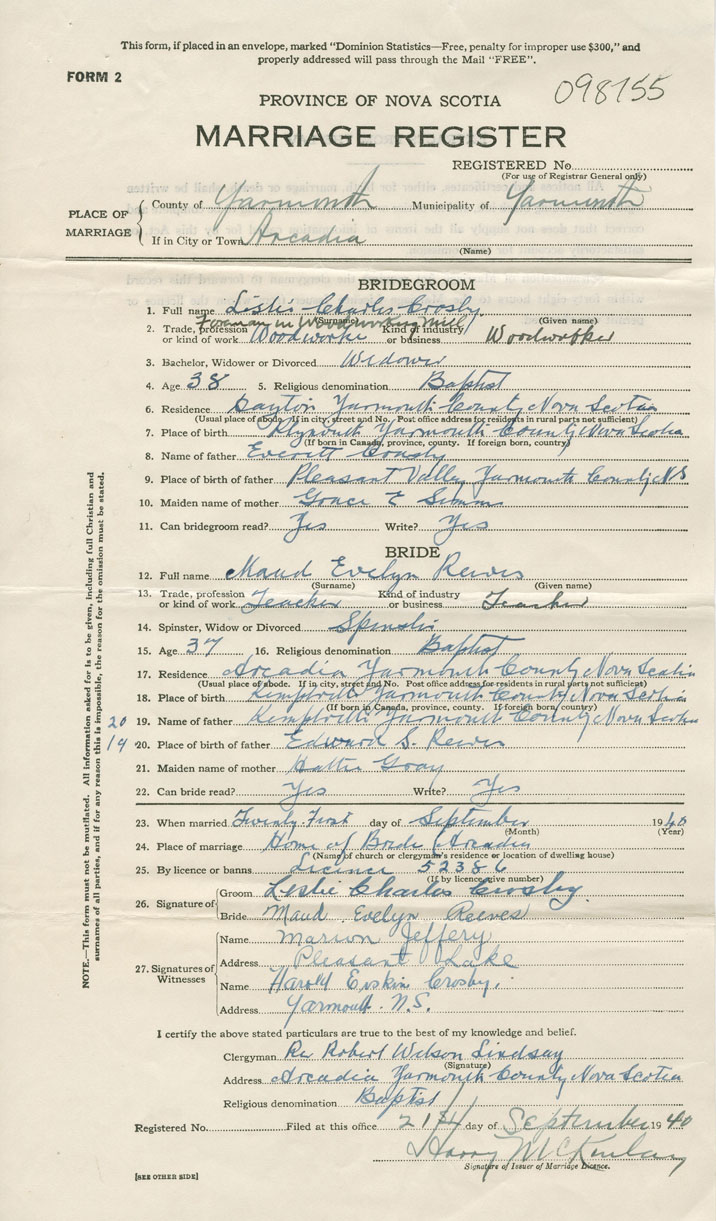 This form, if placed in an envelope, marked "Dominion Statistics—Free, penalty for improper use $300," and
properly addressed will pass through the Mail "FREE".
FORM 2
098155
PROVINCE OF NOVA SCOTIA
MARRIAGE REGISTER
REGISTERED No.
(For use of Registrar General only)
PLACE OF MARRIAGE
County of Yarmouth Municipality of Yarmouth
If in City or Town Arcadia
(Name)
BRIDEGROOM
1. Full name Leslie Charles Crosby
(Surname) (Given name)
Foreman in Woodworking Mill
2. Trade, profession or kind of work Woodworker Kind of industry or business Woodworker
3. Bachelor, Widower or Divorced Widower
4. Age 38 5. Religious denomination Baptist
6. Residence Dayton Yarmouth County Nova Scotia
(Usual place of abode. If in city, street and No. Post office address for residents in rural parts not sufficient)
7. Place of birth Plymouth Yarmouth County Nova Scotia
(If born in Canada, province, county. If foreign born, country)
8. Name of father Everett Crosby
9. Place of birth of father Pleasant Valley Yarmouth County NS
10. Maiden name of mother Grace E
11. Can bridegroom read? Yes Write? Yes
BRIDE
12. Full name Maud Evelyn Reeves
(Surname) (Given name)
13. Trade, profession or kind of work Teacher Kind of industry or business Teacher
14. Spinster, Widow or Divorced Spinster
15. Age 37 16. Religious denomination Baptist
17. Residence Arcadia Yarmouth County Nova Scotia
(Usual place of abode. If in city, street and No. Post office address for residents in rural parts not sufficient)
18. Place of birth Kemptville Yarmouth County Nova Scotia
(If born in Canada, province, county. If foreign born, country)
20 19. Name of father Kemptville Yarmouth County Nova Scotia
19 20. Place of birth of father Edward S. Reeves
21. Maiden name of mother Hattie Gray
22. Can bride read? Yes Write? Yes
23. When married Twenty-First day of September 1940
(Month) (Year)
24. Place of marriage Home of Bride Arcadia
(Name of church or clergyman's residence or location of dwelling house)
25. By licence or banns Licence 52386
(If by licence give number)
26. Signature of
Groom Leslie Charles Crosby.
Bride Maud Evelyn Reeves
27. Signatures of Witnesses
Name Marion Jeffery
Address Pleasant Lake
Name Harold Erskin Crosby.
Address Yarmouth. N.S.
I certify the above stated particulars are true to the best of my knowledge and belief.
Clergyman Rev Robert Wilson Lindsay
(Signature)
Address Arcadia Yarmouth County Nova Scotia
Religious denomination Baptist
Registered No. Filed at this office 21st day of September 1940
Harry McKinlay
Signature of Issuer of Marriage Licence.
[SEE OTHER SIDE]
NOTE.—This form must not be mutilated. All information asked for is to be given, including full Christian and
surnames of all parties, and if for any reason this is impossible, the reason for the omission must be stated.